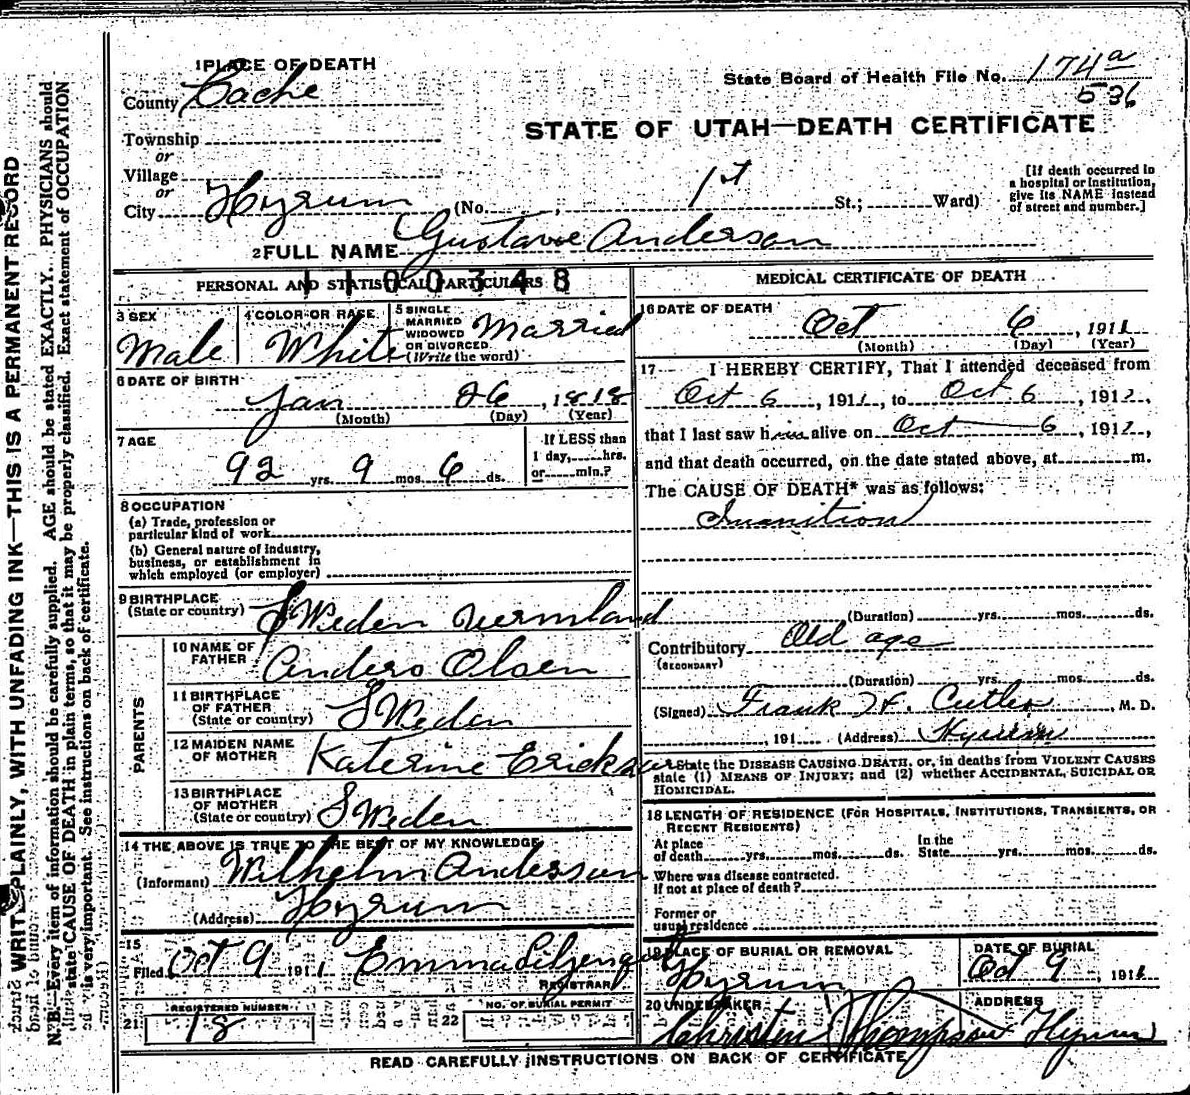 1 PLACE OF DEATH
County Cache
Township
or
Village
or
City Hyrum (No. , 1st St.; Ward)
[If death occurred in
a hospital or institution,
give its NAME instead
of street and number.]
State Board of Health File No. 174a
536
STATE OF UTAH—DEATH CERTIFICATE
2 FULL NAME Gustave Anderson
1100348
PERSONAL AND STATISTICAL PARTICULARS
3 SEX Male
4 COLOR OR RACE White
5 SINGLE
MARRIED
WIDOWED
OR DIVORCED
(Write the word) Married
6 DATE OF BIRTH
Jan 26, 1818
(Month) (Day) (Year)
7 AGE
92 yrs. 9 mos. 6 ds.
If LESS than
1 day, hrs.
or min.?
8 OCCUPATION
(a) Trade, profession or
particular kind of work
(b) General nature of industry,
business, or establishment in
which employed (or employer)
9 BIRTHPLACE
(State or country) SWeden Vermland
PARENTS
10 NAME OF
FATHER Anders Olsen
11 BIRTHPLACE
OF FATHER
(State or country) SWeden
12 MAIDEN NAME
OF MOTHER Katerine
13 BIRTHPLACE
OF MOTHER
(State or country) SWeden
14 THE ABOVE IS TRUE TO THE BEST OF MY KNOWLEDGE
(Informant) Wilhelm Anderson
(Address) Hyrum
15
Filed Oct 9 1911 Emma
REGISTRAR
REGISTERED NUMBER
21 18
NO. OF BURIAL PERMIT
22
MEDICAL CERTIFICATE OF DEATH
16 DATE OF DEATH
Oct 6, 1911
(Month) (Day) (Year)
17 I HEREBY CERTIFY, That I attended deceased from
Oct 6, 1911, to Oct 6, 1911,
that I last saw him alive on Oct 6, 1911,
and that death occurred, on the date stated above, at m.
The CAUSE OF DEATH* was as follows:
Inanition
(Duration) yrs. mos. ds.
Contributory Old age
(SECONDARY)
(Duration) yrs. mos. ds.
(Signed) Frank H. Cutler, M. D.
, 191 (Address) Hyrum
State the DISEASE CAUSING DEATH, or, in deaths from VIOLENT CAUSES
state (1) MEANS OF INJURY; and (2) whether ACCIDENTAL, SUICIDAL OR
HOMICIDAL.
18 LENGTH OF RESIDENCE (FOR HOSPITALS, INSTITUTIONS, TRANSIENTS, OR
RECENT RESIDENTS)
At place
of death yrs. mos. ds.
In the
State yrs. mos. ds.
Where was disease contracted.
if not at place of death?
Former or
usual residence
19 PLACE OF BURIAL OR REMOVAL
Hyrum
DATE OF BURIAL
Oct 9, 1911
20 UNDERTAKER
Thompson
ADDRESS
Hyrum
READ CAREFULLY INSTRUCTIONS ON BACK OF CERTIFICATE
WRITE PLAINLY, WITH UNFADING INK—THIS IS A PERMANENT RECORD
N. B.—Every item of information should be carefully supplied. AGE should be stated EXACTLY. PHYSICIANS should
state CAUSE OF DEATH in plain terms, so that it may be properly classified. Exact statement of OCCUPATION
is very important. See instructions on back of certificate.